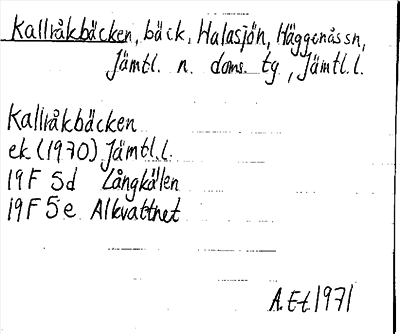 Kallråkbäcken, bäck, Halasjön, Häggenåssn,
Jämtl. n. doms. tg, Jämtl.l.
Kallråkbäcken
ek (1970) Jämtl.l.
19F 5d Långkälen
19F 5e Alkvattnet
A.Et.1971